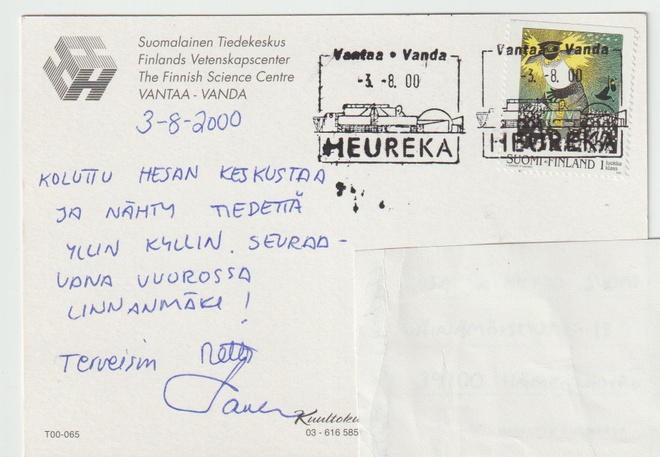 Suomalainen Tiedekeskus
Finlands Vetenskapscenter
The Finnish Science Centre
VANTAA - VANDA
H
Vantaa • Vanda
-3. -8. 00
HEUREKA
Vantaa • Vanda
-3. -8. 00
HEUREKA
SUOMI-FINLAND 1 luokka klass
3-8-2000
KOLUTTU HESAN KESKUSTAA
JA NÄHTY TIEDETTÄ
YLLIN KYLLIN. SEURAA-
VANA VUOROSSA
LINNANMÄKI!
Terveisin
T00-065
03 - 616 585